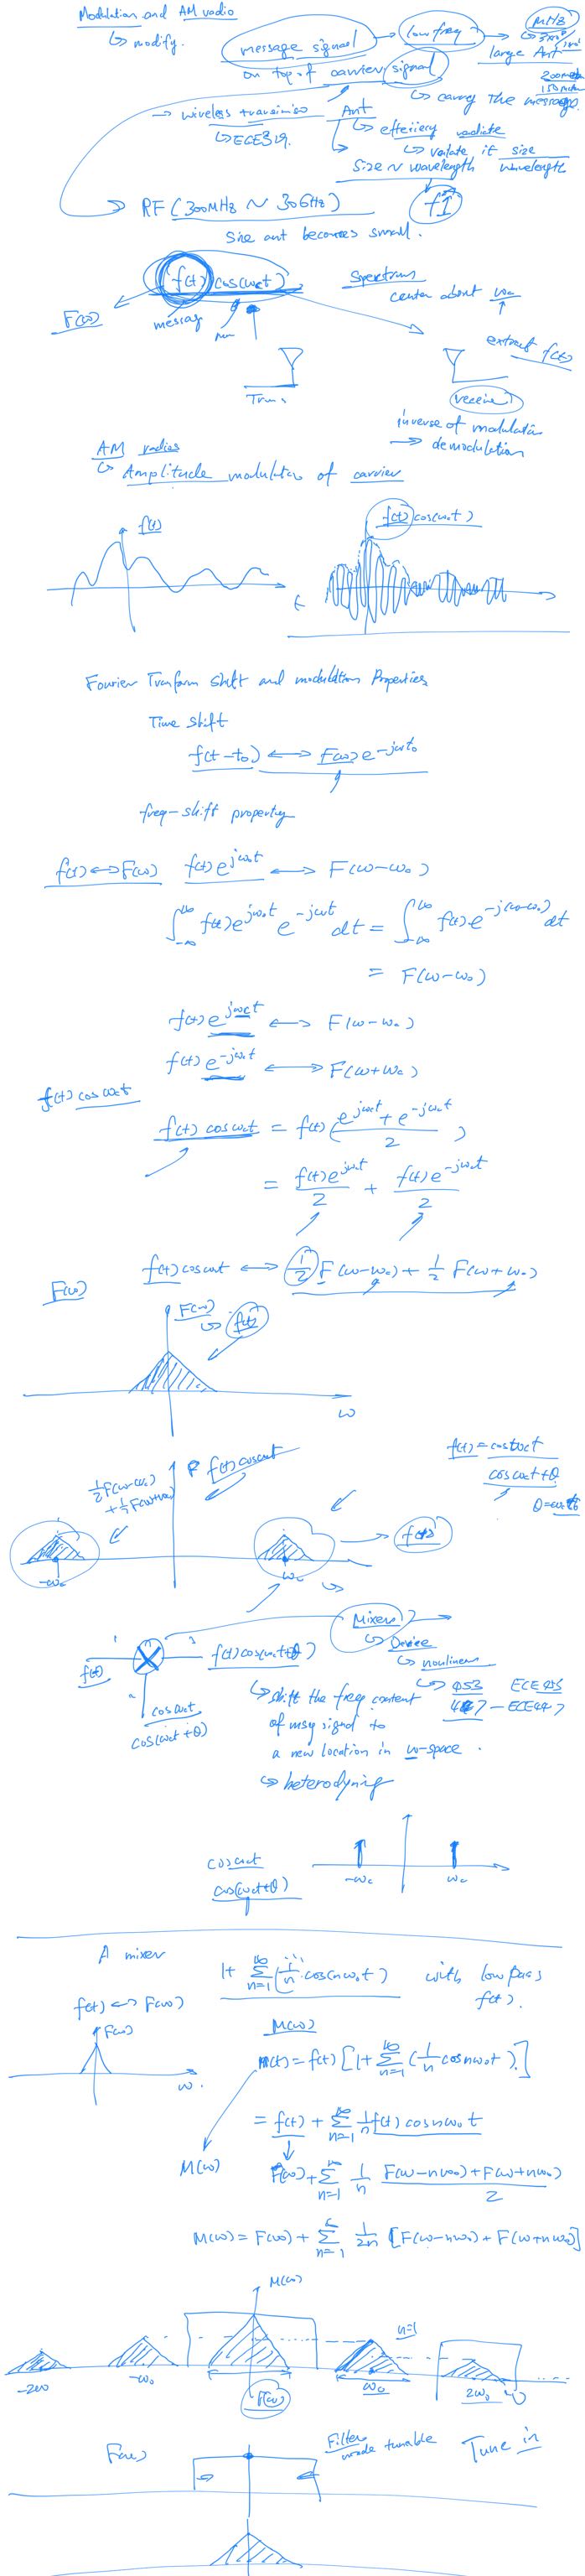 Modulation and AM radio
↳ modify.
message signal → low freq → MHz
on top of carrier signal
large Ant
↳ carry the message.
→ wireless transmission
↳ ECE329.
Ant
↳ efficiency radiate
↳ radiate it size
wavelength
size ~ wavelength
→ RF (300MHz ~ 30GHz)
f↑
size ant becomes small.
f(t) cos(ωct)
F(ω)
message
Spectrum
center about ωc
extract f(t)
Trans.
receiver
inverse of modulation
→ demodulation
AM radios
↳ Amplitude modulation of carrier
f(t)
f(t) cos(ωct)
t
Fourier Tranform shift and modulation Properties
Time shift
f(t-t₀) ↔ F(ω) e^{-jωt₀}
freq-shift property
f(t) ↔ F(ω)
f(t) e^{jω₀t} ↔ F(ω-ω₀)
∫_{-∞}^{∞} f(t) e^{jω₀t} e^{-jωt} dt = ∫_{-∞}^{∞} f(t) e^{-j(ω-ω₀)t} dt
= F(ω-ω₀)
f(t) e^{jωct} ↔ F(ω-ωc)
f(t) e^{-jωct} ↔ F(ω+ωc)
f(t) cos ωct
f(t) cos ωct = f(t) (e^{jωct} + e^{-jωct} / 2)
= f(t)e^{jωct}/2 + f(t)e^{-jωct}/2
f(t) cos ωct ↔ 1/2 F(ω-ωc) + 1/2 F(ω+ωc)
F(ω)
F(ω)
↳ f(t)
ω
f(t) cos ωct
1/2 F(ω-ωc)
+ 1/2 F(ω+ωc)
f(t) = cos ωct
cos ωct + θ
f(t)
-ωc
ωc
Mixer
↳ Device
↳ nonlinear
f(t)
f(t) cos(ωct+θ)
cos ωct
cos(ωct+θ)
↳ 453 ECE453
447 - ECE447
↳ shift the freq content
of msg signal to
a new location in ω-space.
↳ heterodyning
cos ωct
cos(ωct+θ)
-ωc
ωc
A mixer
1+ Σ_{n=1}^{∞} (1/n cos nω₀t) with low pass
f(t).
f(t) ↔ F(ω)
F(ω)
ω.
M(ω)
m(t) = f(t) [1 + Σ_{n=1}^{∞} (1/n cos nω₀t)]
= f(t) + Σ_{n=1}^{∞} 1/n f(t) cos nω₀t
M(ω)
F(ω) + Σ_{n=1}^{∞} 1/n F(ω-nω₀)+F(ω+nω₀) / 2
M(ω) = F(ω) + Σ_{n=1}^{∞} 1/2n [F(ω-nω₀) + F(ω+nω₀)]
M(ω)
n=1
-2ω
-ω₀
F(ω)
ω₀
2ω₀
F(ω)
Filter
made tunable
Tune in